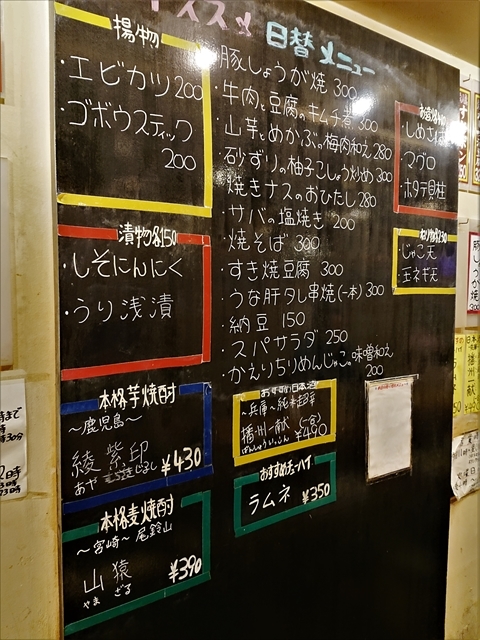 オススメ
日替メニュー
揚物
・エビカツ 200
・ゴボウスティック
200
・豚しょうが焼 300
・牛肉と豆腐のキムチ煮 300
・山芋とめかぶの梅肉和え 280
・砂ずりの柚子こしょう炒め 300
・焼きナスのおひたし 280
・サバの塩焼き 200
・焼そば 300
・すき焼豆腐 300
・うな肝タレ串焼(一本) 300
・納豆 150
・スパサラダ 250
・かえりちりめんじゃこの味噌和え
200
・しめさば
・マグロ
・ホタテ貝柱
・じゃこ天
・玉ネギ天
漬物各150
・しそにんにく
・うり浅漬
本格芋焼酎
〜鹿児島〜
綾紫印
あや むらさき じるし
¥430
本格麦焼酎
〜宮崎〜 尾鈴山
山猿
やま ざる
¥390
おすすめ日本酒
〜兵庫〜純米超辛
播州一献 (一合)
ばんしゅういっこん
¥490
おすすめチューハイ
ラムネ ¥350